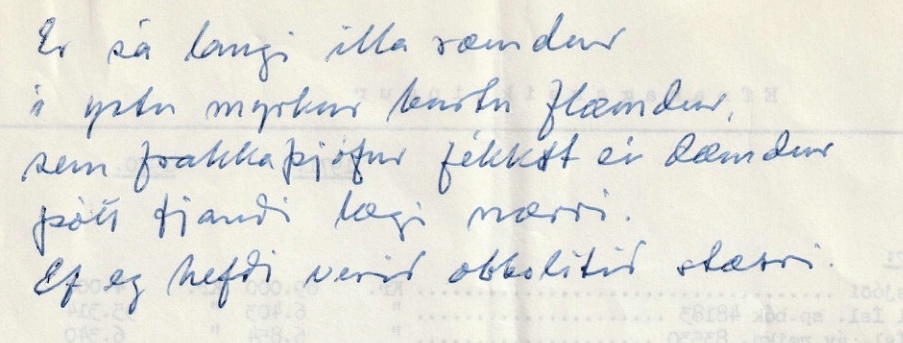 Er sá langi illa ræmdur
í ystu myrkur burtu flæmdur,
sem frakkaþjófur fékkst ei dæmdur
þótt fjandi lægi nærri.
Ef eg hefði verið obbolitið stærri.